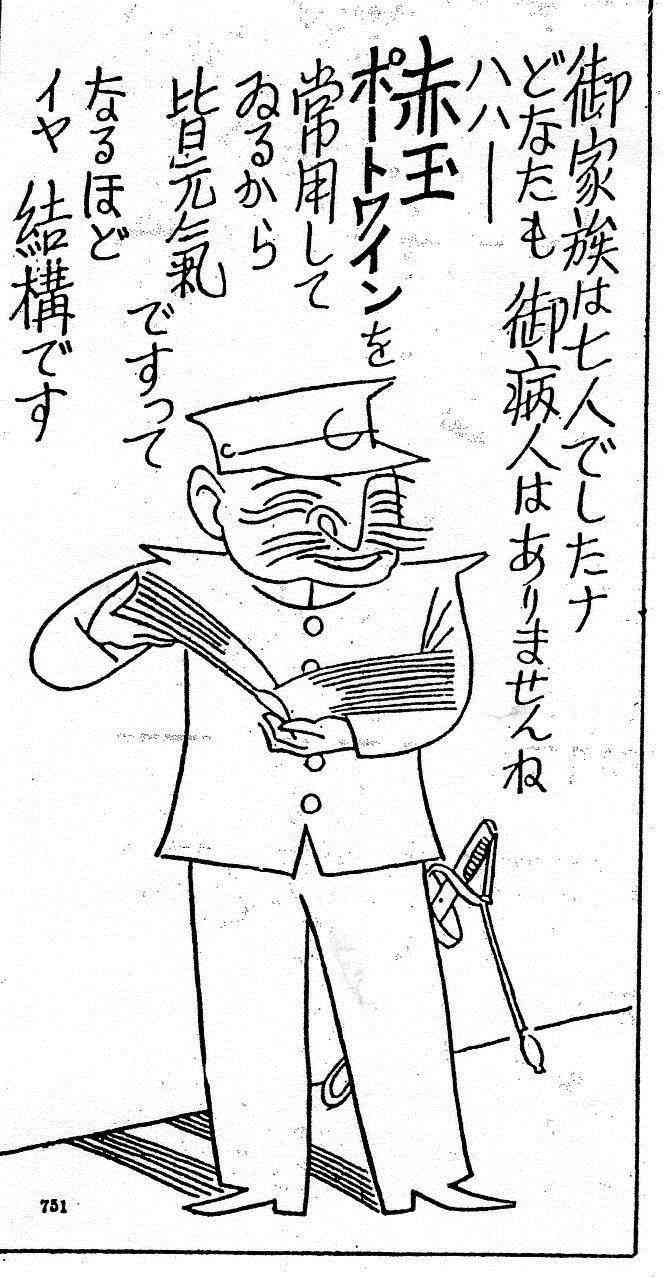 御家族は七人でしたナ
どなたも 御病人はありませんね
ハハー
赤玉
ポートワインを
常用して
ゐるから
皆元氣
ですって
なるほど
イヤ 結構です
751